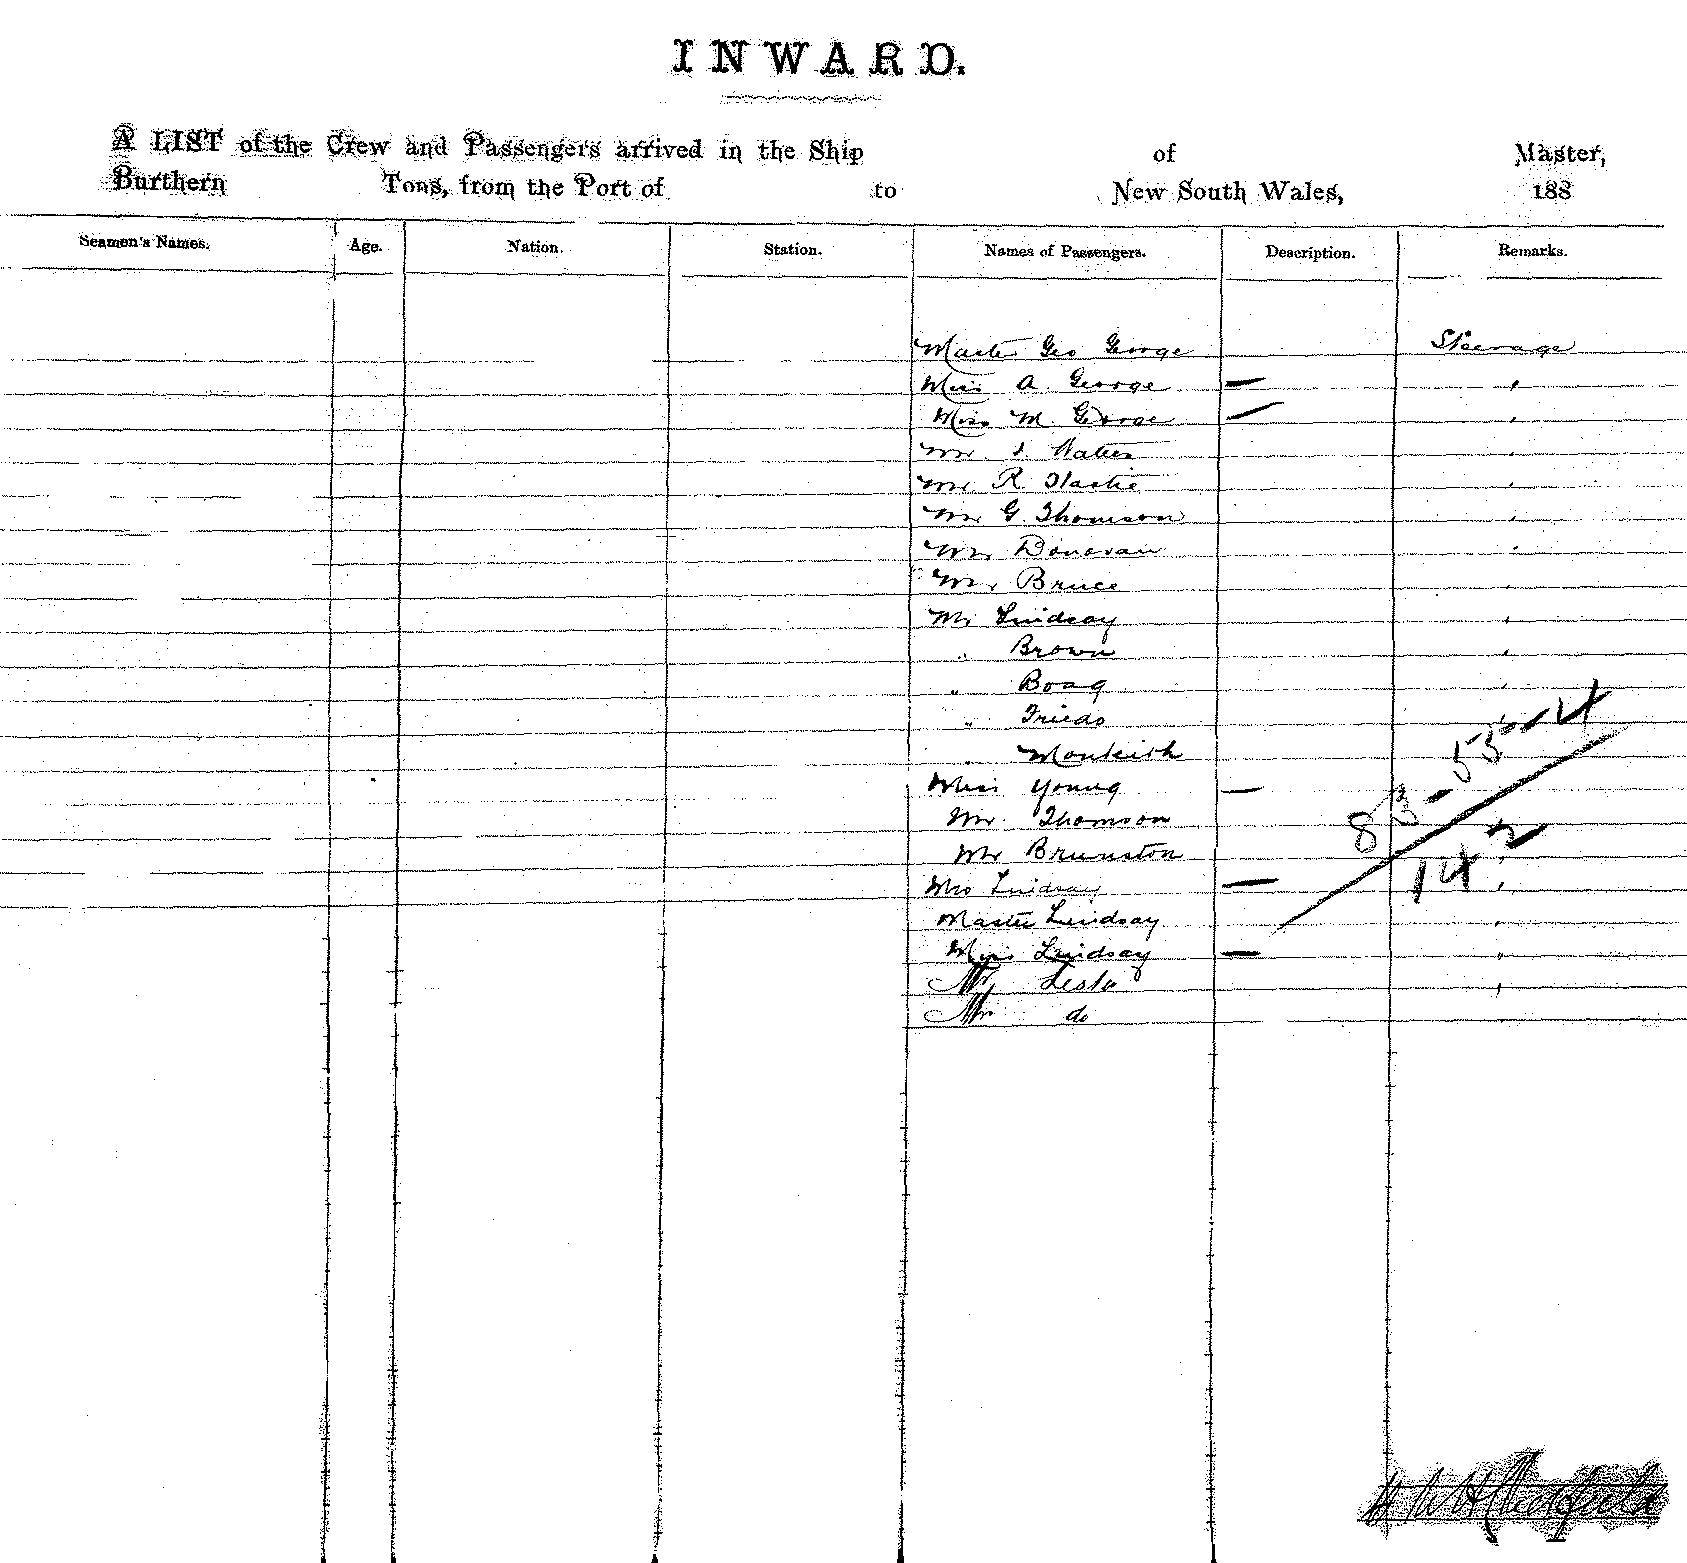 INWARD.
A LIST of the Crew and Passengers arrived in the Ship of Master,
Burthern Tons, from the Port of to New South Wales, 188
Seamen's Names. Age. Nation. Station. Names of Passengers. Description. Remarks.
Master Geo George Steerage
Miss A. George — "
Miss M. George — "
Mr. J. Watters "
Mr R Hastie "
Mr G. Thomson "
Mr Donovan "
Mr Bruce "
Mr Lindsay "
" Brown "
" Boag "
" Friedo
" Monkeith
Miss Young —
Mr. Thomson
Mr Brunston
Mrs Lindsay — "
Master Lindsay "
Miss Lindsay — "
Mr "
Mr do
83 - 55
14 2